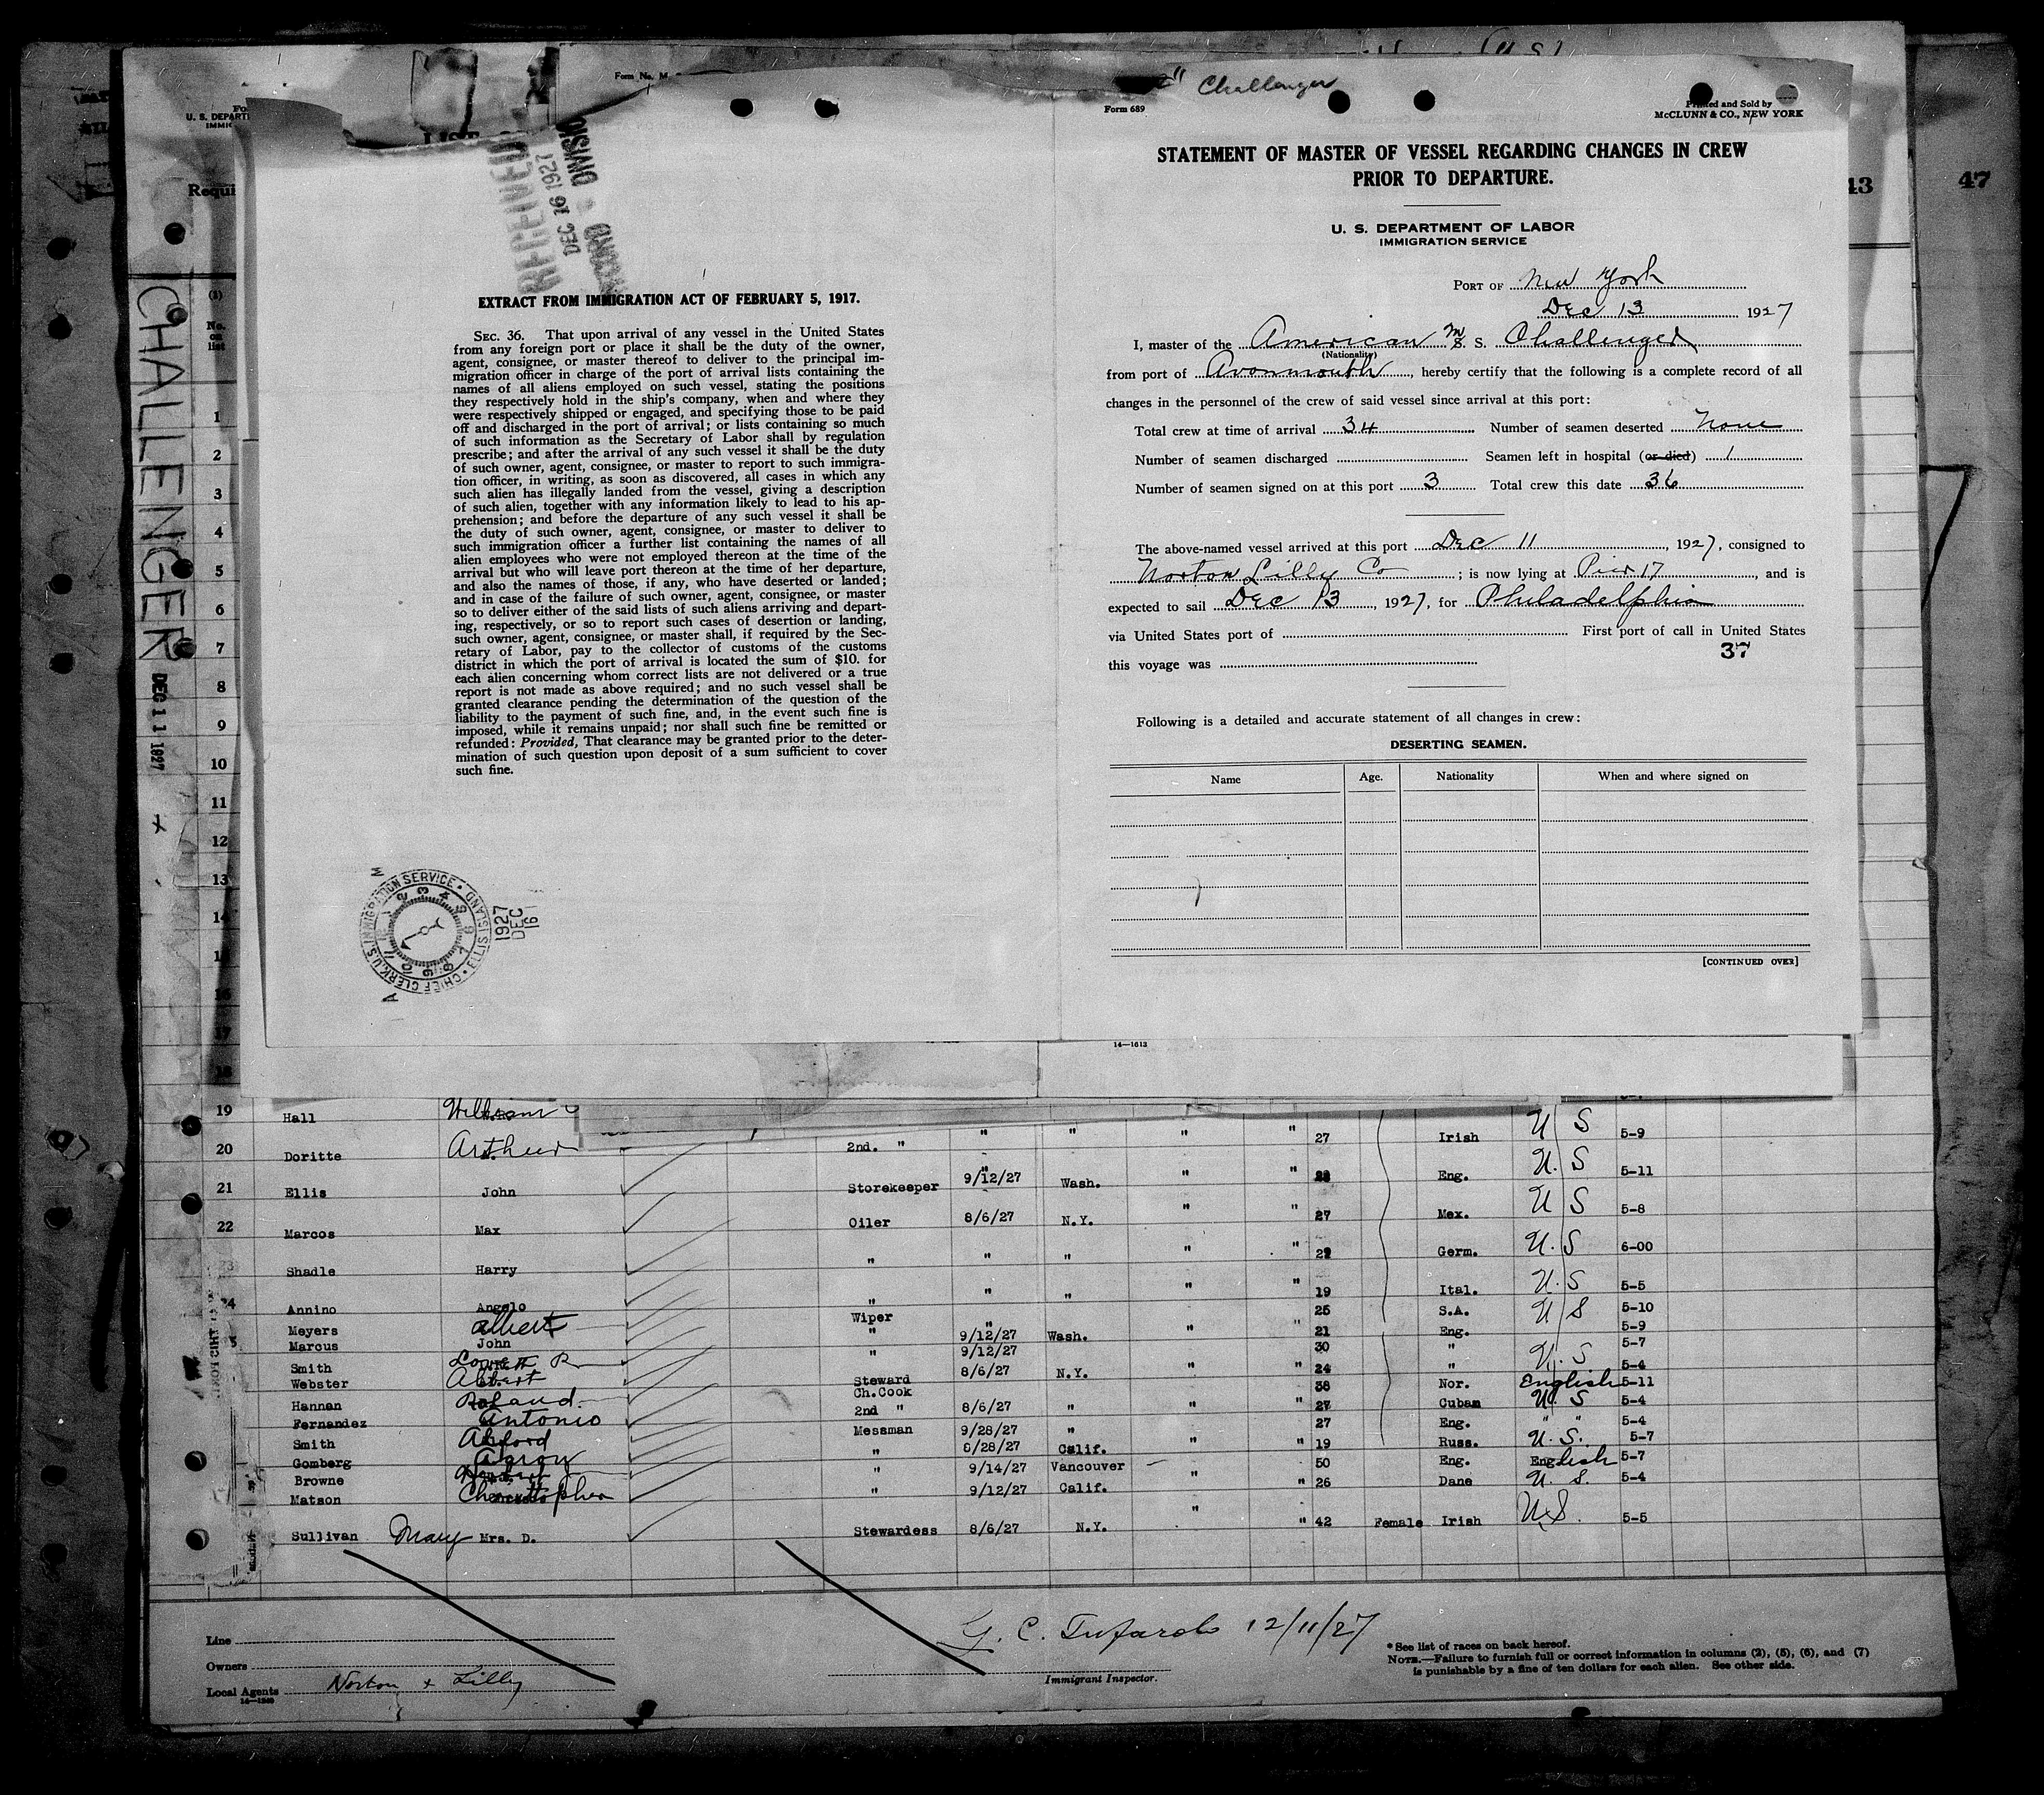 Form No. M
" Challenger
Form 689
Printed and Sold by
McCLUNN & CO., NEW YORK
U. S. DEPART
IMMIG
Requi
13
47
RECEIVED
DEC 16 1927
DIVISION
STATEMENT OF MASTER OF VESSEL REGARDING CHANGES IN CREW
PRIOR TO DEPARTURE.
U. S. DEPARTMENT OF LABOR
IMMIGRATION SERVICE
PORT OF New York
Dec 13 1927
I, master of the American M S. Challenger
(Nationality)
from port of Avonmouth, hereby certify that the following is a complete record of all
changes in the personnel of the crew of said vessel since arrival at this port:
Total crew at time of arrival 34 Number of seamen deserted None
Number of seamen discharged Seamen left in hospital (or died) 1
Number of seamen signed on at this port 3 Total crew this date 36
The above-named vessel arrived at this port Dec 11, 1927, consigned to
Norton Lilly Co; is now lying at Pier 17, and is
expected to sail Dec 13, 1927, for Philadelphia
via United States port of First port of call in United States
37
this voyage was
Following is a detailed and accurate statement of all changes in crew:
DESERTING SEAMEN.
Name Age. Nationality When and where signed on
[CONTINUED OVER]
EXTRACT FROM IMMIGRATION ACT OF FEBRUARY 5, 1917.
SEC. 36. That upon arrival of any vessel in the United States
from any foreign port or place it shall be the duty of the owner,
agent, consignee, or master thereof to deliver to the principal im-
migration officer in charge of the port of arrival lists containing the
names of all aliens employed on such vessel, stating the positions
they respectively hold in the ship's company, when and where they
were respectively shipped or engaged, and specifying those to be paid
off and discharged in the port of arrival; or lists containing so much
of such information as the Secretary of Labor shall by regulation
prescribe; and after the arrival of any such vessel it shall be the duty
of such owner, agent, consignee, or master to report to such immigra-
tion officer, in writing, as soon as discovered, all cases in which any
such alien has illegally landed from the vessel, giving a description
of such alien, together with any information likely to lead to his ap-
prehension; and before the departure of any such vessel it shall be
the duty of such owner, agent, consignee, or master to deliver to
such immigration officer a further list containing the names of all
alien employees who were not employed thereon at the time of the
arrival but who will leave port thereon at the time of her departure,
and also the names of those, if any, who have deserted or landed;
and in case of the failure of such owner, agent, consignee, or master
so to deliver either of the said lists of such aliens arriving and depart-
ing, respectively, or so to report such cases of desertion or landing,
such owner, agent, consignee, or master shall, if required by the Sec-
retary of Labor, pay to the collector of customs of the customs
district in which the port of arrival is located the sum of $10. for
each alien concerning whom correct lists are not delivered or a true
report is not made as above required; and no such vessel shall be
granted clearance pending the determination of the question of the
liability to the payment of such fine, and, in the event such fine is
imposed, while it remains unpaid; nor shall such fine be remitted or
refunded: Provided, That clearance may be granted prior to the deter-
mination of such question upon deposit of a sum sufficient to cover
such fine.
CHIEF CLERK, U.S. IMMIGRATION SERVICE • ELLIS ISLAND
1927
DEC
16
CHALLENGER DEC 11 1927
No.
on
list
1
2
3
4
5
6
7
8
9
10
11
12
13
14
15
16
17
18
14—1613
19 Hall William " " " " 27 Irish U S 5-9
20 Doritte Arthur 2nd. " " " " Eng. U. S 5-11
21 Ellis John Storekeeper 9/12/27 Wash. " " 27 Mex. U S 5-8
22 Marcos Max Oiler 8/6/27 N.Y. " " Germ. U. S 6-00
23 Shadle Harry " " " " " 19 Ital. U. S 5-5
24 Annino Angelo " " " " " 25 S.A. U S 5-10
Meyers Albert Wiper " " 21 Eng. 5-9
Marcus John " 9/12/27 Wash. 30 " 5-7
Smith Lowell R " 9/12/27 " " 24 " U. S 5-4
Webster Albert Steward 8/6/27 N.Y. 38 Nor. English 5-11
Hannan Roland Ch.Cook " " 27 Cuban U. S 5-4
Fernandez Antonio 2nd " 8/6/27 " 27 Eng. " " 5-4
Smith Alford Messman 9/28/27 " " 19 Russ. U. S. 5-7
Gomberg Aaron " 8/28/27 Calif. 50 Eng. English 5-7
Browne " 9/14/27 Vancouver " " 26 Dane U. S. 5-4
Matson Christopher " 9/12/27 Calif. "
Sullivan Mary Mrs. D. Stewardess 8/6/27 N.Y. " 42 Female Irish U.S. 5-5
Line
Owners
Local Agents Norton & Lilly
14—1240
G. C. Tufarolo 12/11/27
Immigrant Inspector.
* See list of races on back hereof.
NOTE.—Failure to furnish full or correct information in columns (2), (5), (6), and (7)
is punishable by a fine of ten dollars for each alien. See other side.